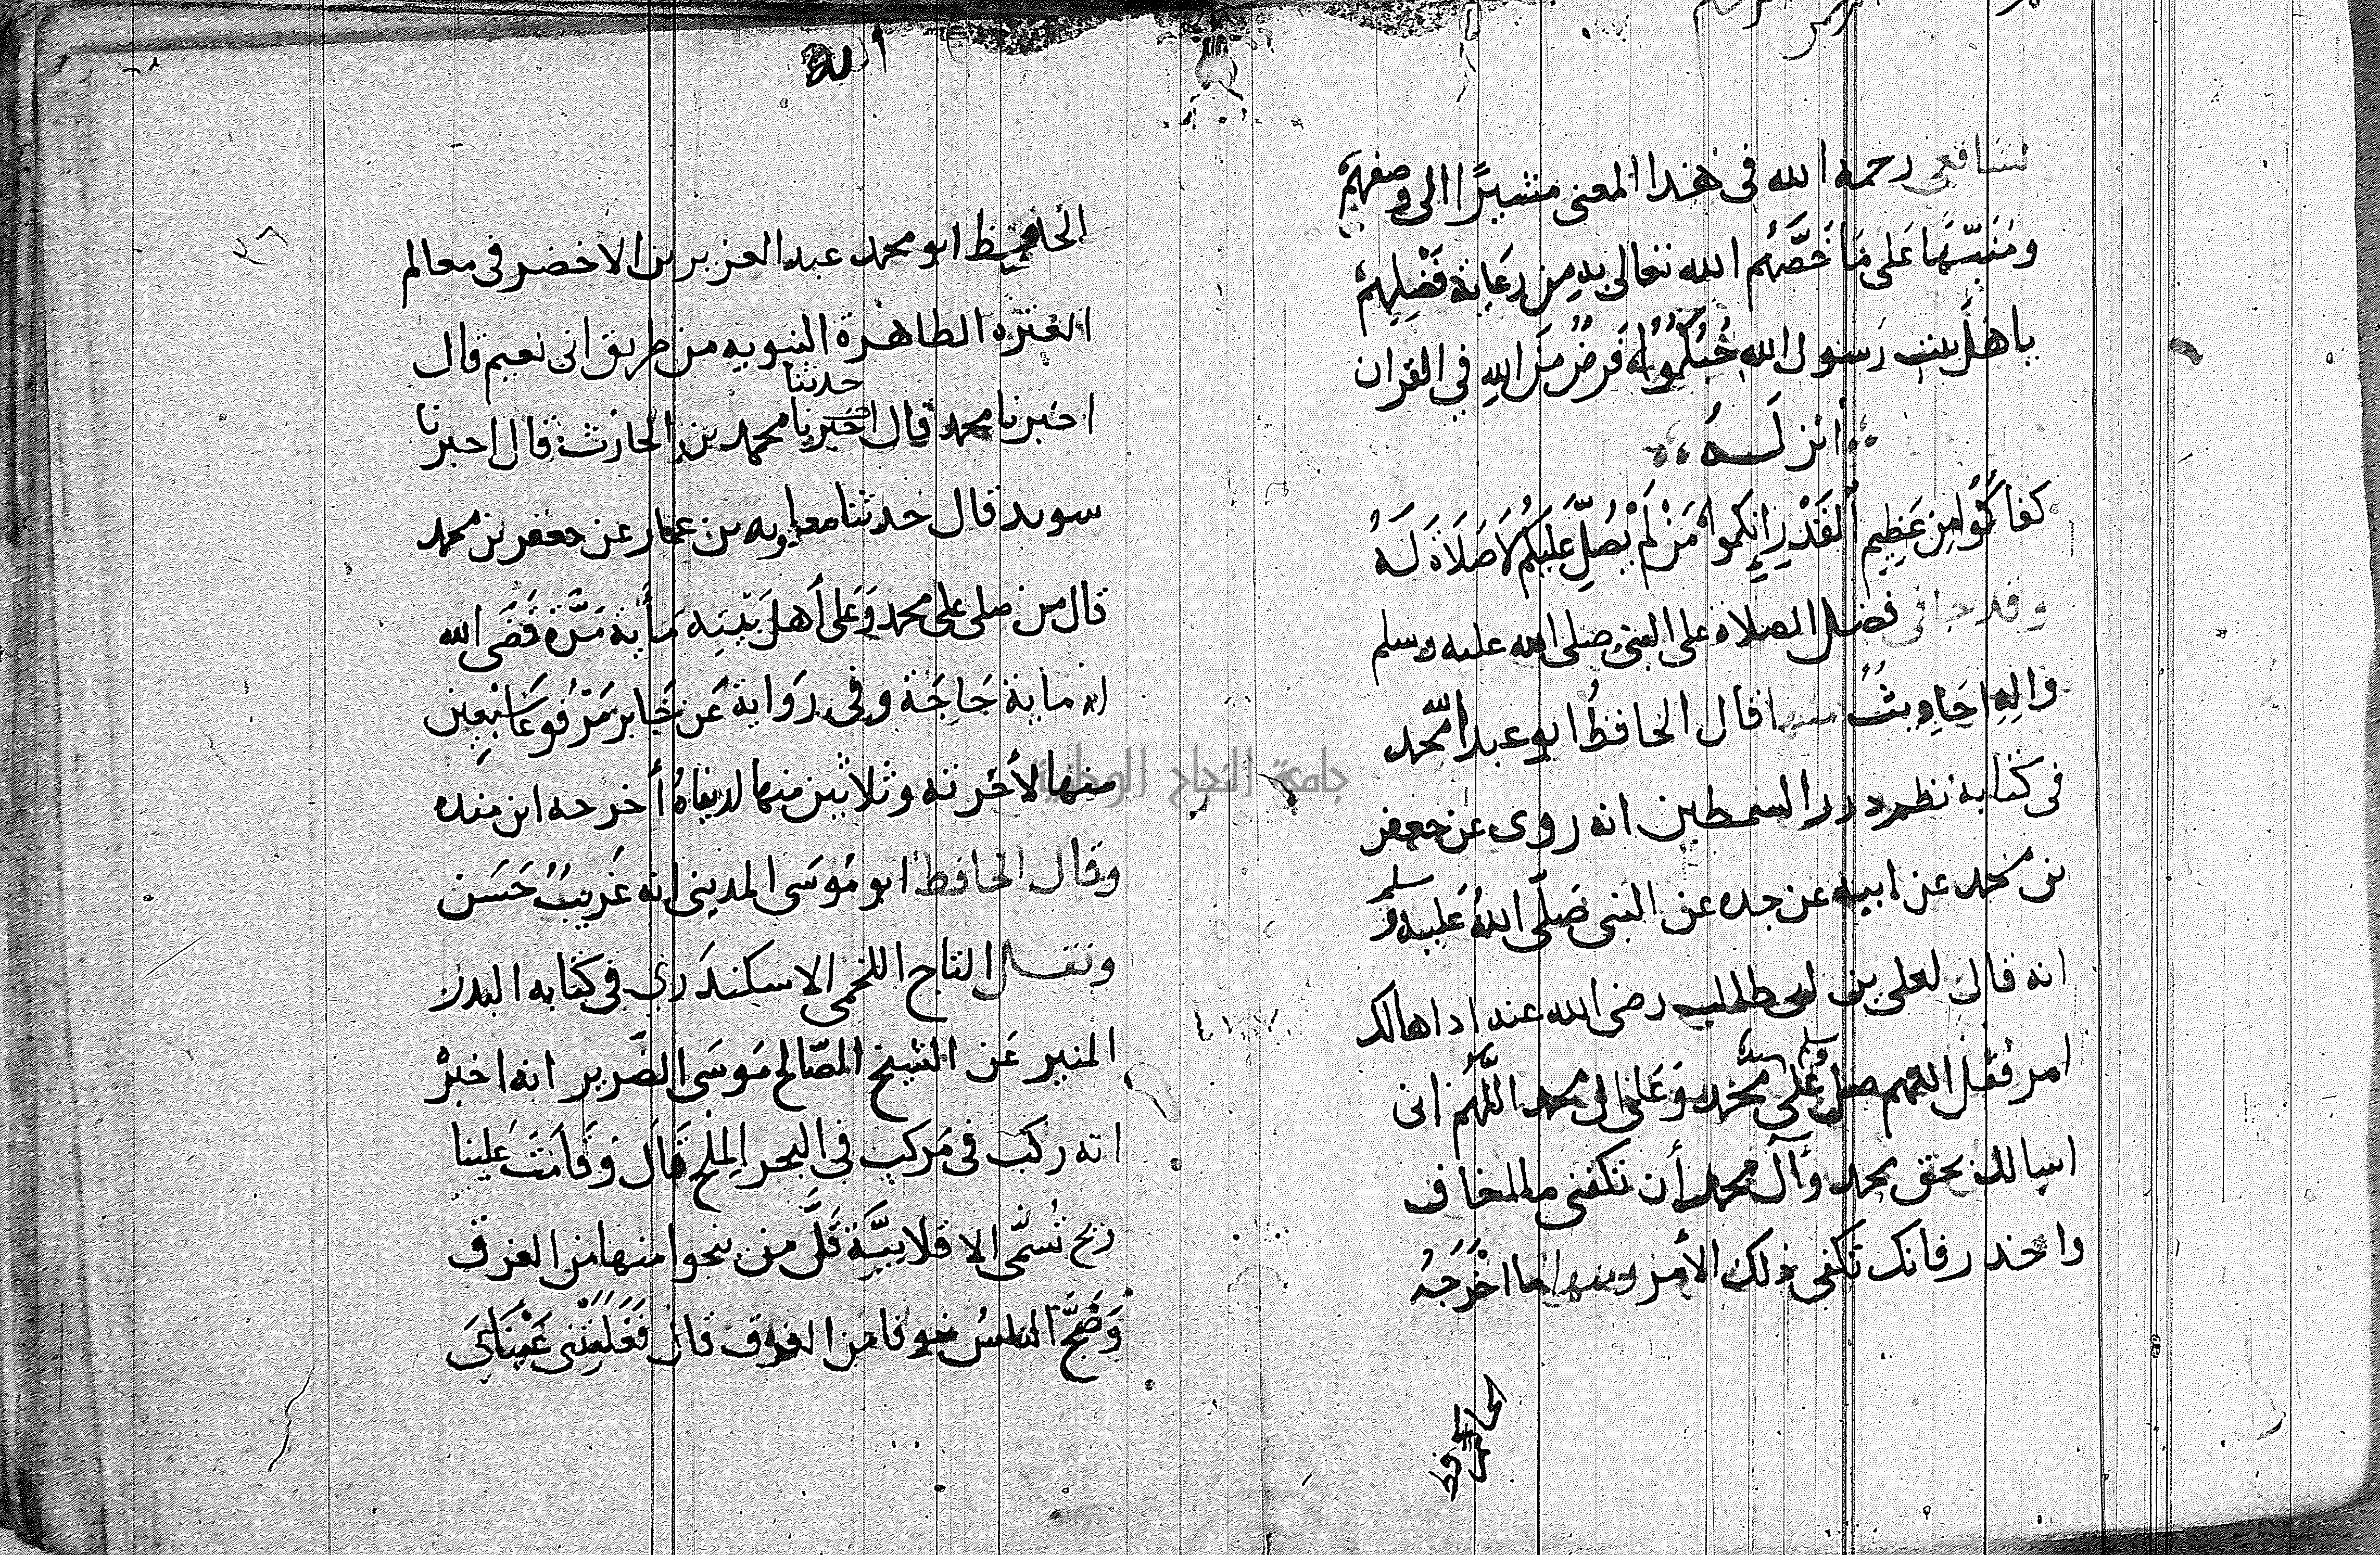 لشافعي رحمه الله في هذا المعنى مشيرًا الى وصفهم
ومنبّهًا على مَا خَصَّهُم الله تعالى بهِ من رعاية فَضْلِهِمْ
ياهل بيت رسول الله حُبُكُمُوا فَرضٌ مِنَ اللهِ في القران
أنزلَهُ
كفاكُمُوا مِن عَظِيمِ القَدْرِ انكموا مَنْ لَمْ يُصَلِّ عَلَيكُم لَا صَلَاةَ لَهُ
وقد جا في فضل الصلاه على النبي صلى الله عليه وسلم
والِهِ احَادِيثٌ منها قال الحافظُ ابو عبد الله محمد
في كتابه نظم درر السمطين انه روى عن جعفر
بن محمد عن ابيه عن جده عن النبي صَلّى اللهُ عَليهِ وسلم
انه قال لعلي بن ابي طالب رضى الله عنه اذا هالك
امر فقل اللهم صل وسلم على محمد وَعَلى ال محمد اللَّهُم اني
اسالك بحق محمد وآل محمد أن تكفني ما اخاف
واحذر فانك تكفى ذلك الأمر ومنها ما اخْرَجَهُ
الحافظ
الله
الحافظ ابو محمد عبد العزيز بن الاخضر في معالم
العتره الطاهرة النبويه من طريق ابي نعيم قال
حدثنا
اخبرنا محمد قال اخبرنا محمد بن الحارث قال اخبرنا
سويد قال حدثنا معاويه بن عمار عن جعفر بن محمد
قال من صلى على محمد وَعَلى أَهلِ بَيْتِهِ مأية مَرَّة قَضَى الله
له ماية حَاجَة وفي رَوَاية عَن جَابر مَرْفُوعًا سَبْعِين
منها لأخرته وثلاثين منها لدنياهُ أخرجه ابن منده
وقال الحافظ ابو مُوسَى المديني انه غَرِيبٌ حَسَن
ونقل التاج اللخمي الاسكندَري في كتابه البدر
المنير عَن الشيخ الصّالح مَوسَى الضّرير انه اخبرْ
انه ركب في مَركب في البحر الملح قَالَ وَقَامَتَ عَلينا
ريح تُسَمّى الاقلابيَّة قَلَّ من ينجوا منها من الغرق
وَضَجَّ الناسُ خوفا من الغرق قال فَغَلبَتْنِي عَيْنَايَ
جامعة النجاح الوطنية